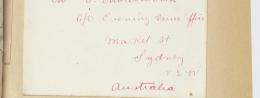 C/o Evening News Office
Market St
Sydney
N.S.W
Australia